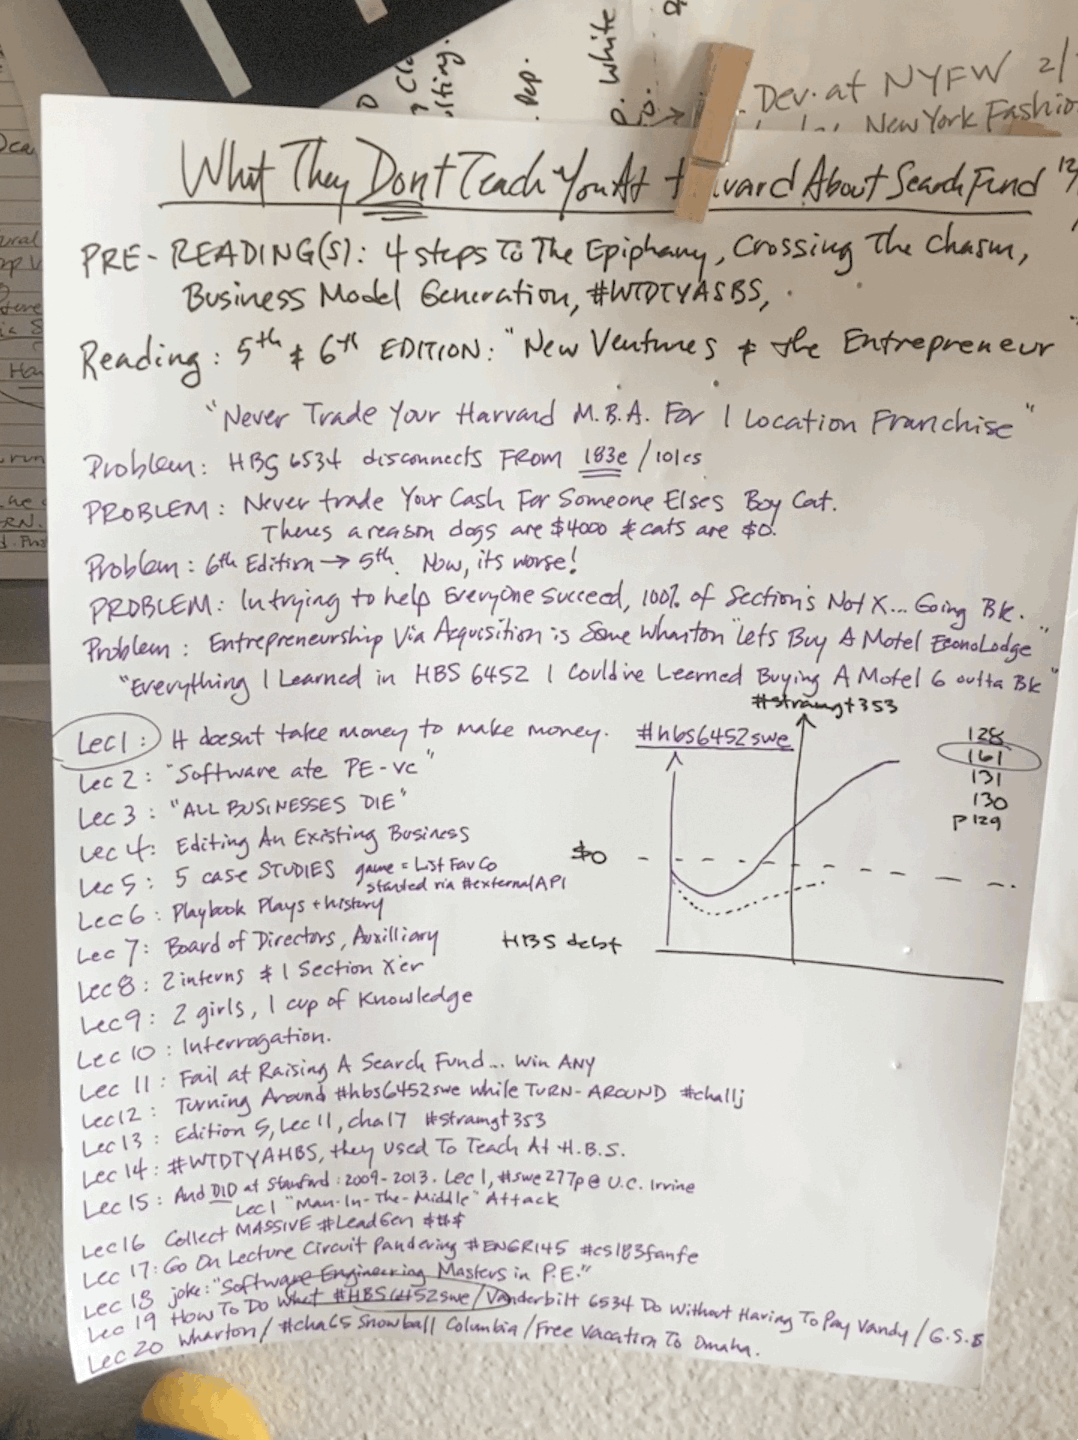 White
Dep.
Dev. at NYFW 2/
New York Fashio
What They Don't Teach You At Harvard About Search Fund
PRE-READING(S): 4 steps To The Epiphany, Crossing The Chasm,
Business Model Generation, #WTDTYASBS,
Reading: 5th & 6th EDITION: "New Ventures & the Entrepreneur
"Never Trade Your Harvard M.B.A. For 1 Location Franchise"
Problem: HBS 6534 disconnects FROM 183e /101cs
PROBLEM: Never trade Your Cash For Someone Elses Boy Cat.
Theres a reason dogs are $4000 & cats are $0.
Problem: 6th Edition → 5th. Now, its worse!
PROBLEM: In trying to help Everyone Succeed, 100% of Section's Not X... Going Bk.
Problem: Entrepreneurship Via Acquisition is Some Wharton "Lets Buy A Motel EconoLodge"
"Everything I Learned in HBS 6452 I Could've Learned Buying A Motel 6 outta Bk"
#stramgt353
Lec 1: It doesnt take money to make money. #hbs6452swe
128
161
131
130
P129
Lec 2: "Software ate PE-VC"
Lec 3: "ALL BUSINESSES DIE"
Lec 4: Editing An Existing Business
$0
Lec 5: 5 case STUDIES game = List Fav Co
started via #externalAPI
Lec 6: Playbook Plays + history
Lec 7: Board of Directors, Auxilliary
HBS debt
Lec 8: 2 interns & 1 Section X'er
Lec 9: 2 girls, 1 cup of Knowledge
Lec 10: Interrogation.
Lec 11: Fail at Raising A Search Fund... Win ANY
Lec 12: Turning Around #hbs6452swe while TURN-AROUND #challj
Lec 13: Edition 5, Lec 11, cha17 #Stramgt353
Lec 14: #WTDTYAHBS, they used To Teach At H.B.S.
Lec 15: And DID at Stanford: 2009-2013. Lec 1, #swe277p@ U.C. Irvine
Lec 1 "Man-In-The-Middle" Attack
Lec 16 Collect MASSIVE #LeadGen $$$
Lec 17: Go On Lecture Circuit Pandering #ENGR145 #cs183fanfe
Lec 18 joke: "Software Engineering Masters in P.E."
Lec 19 How To Do What #HBS6452swe/Vanderbilt 6534 Do Without Having To Pay Vandy/G.S.B
Lec 20 Wharton/#cha65 Snowball Columbia/Free Vacation To Omaha.